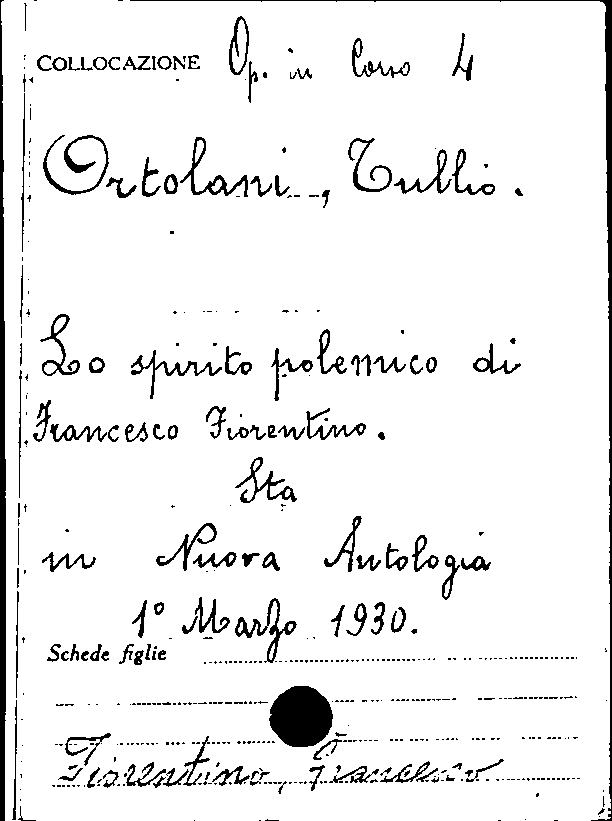 COLLOCAZIONE Op. in Corso 4
Ortolani, Tullio.
Lo spirito polemico di
Francesco Fiorentino.
Sta
in Nuova Antologia
1° Marzo 1930.
Schede figlie
Fiorentino, Francesco